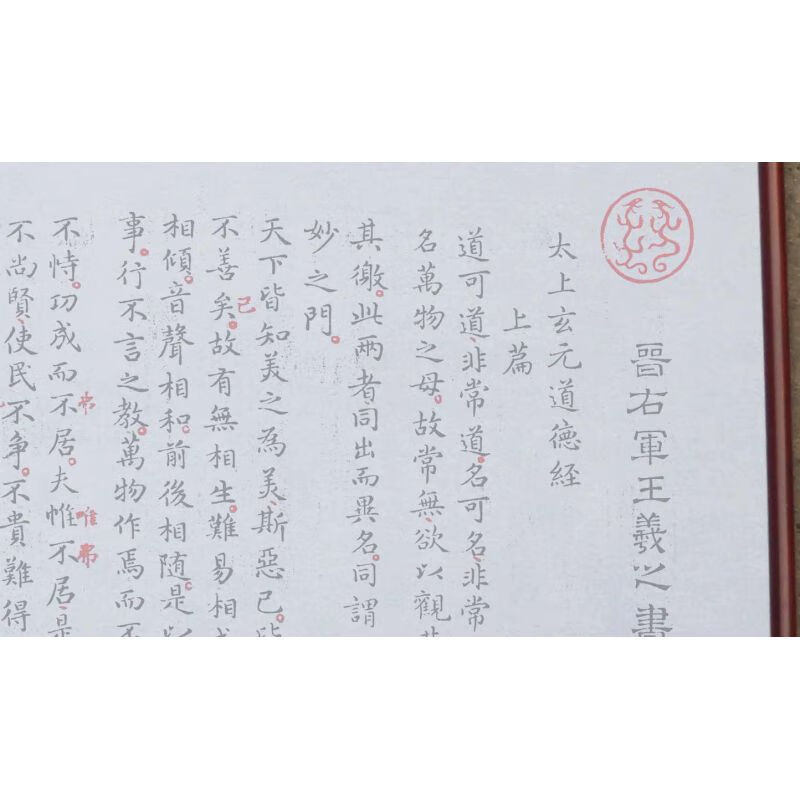 晉右軍王羲之書
太上玄元道德経
上篇
道可道、非常道。名可名、非常
名萬物之母。故常無、欲以觀
其徼。此兩者、同出而異名。同謂
妙之門。
天下皆知美之為美、斯惡已。皆
不善矣。故有無相生、難易相
已
相傾。音聲相和。前後相随。是以
事。行不言之教。萬物作焉而不
不恃。功成而不居。夫惟不居、是
弗
唯
弗
不尚賢、使民不争。不貴難得